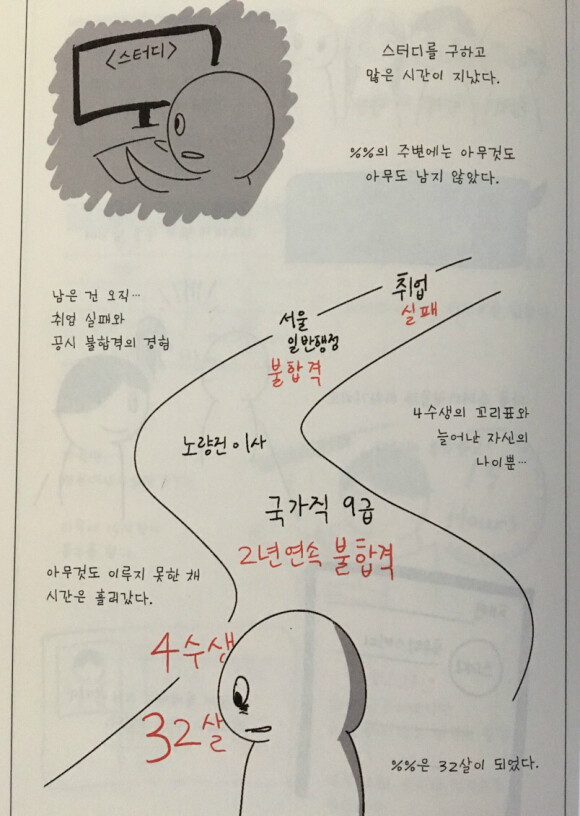 <스터디>
스터디를 구하고
많은 시간이 지났다.
%%의 주변에는 아무것도
아무도 남지 않았다.
남은 건 오직…
취업 실패와
공시 불합격의 경험
취업
실패
서울
일반행정
불합격
4수생의 꼬리표와
늘어난 자신의
나이뿐…
노량진 이사
국가직 9급
2년연속 불합격
아무것도 이루지 못한 채
시간은 흘러갔다.
4수생
32살
%%은 32살이 되었다.